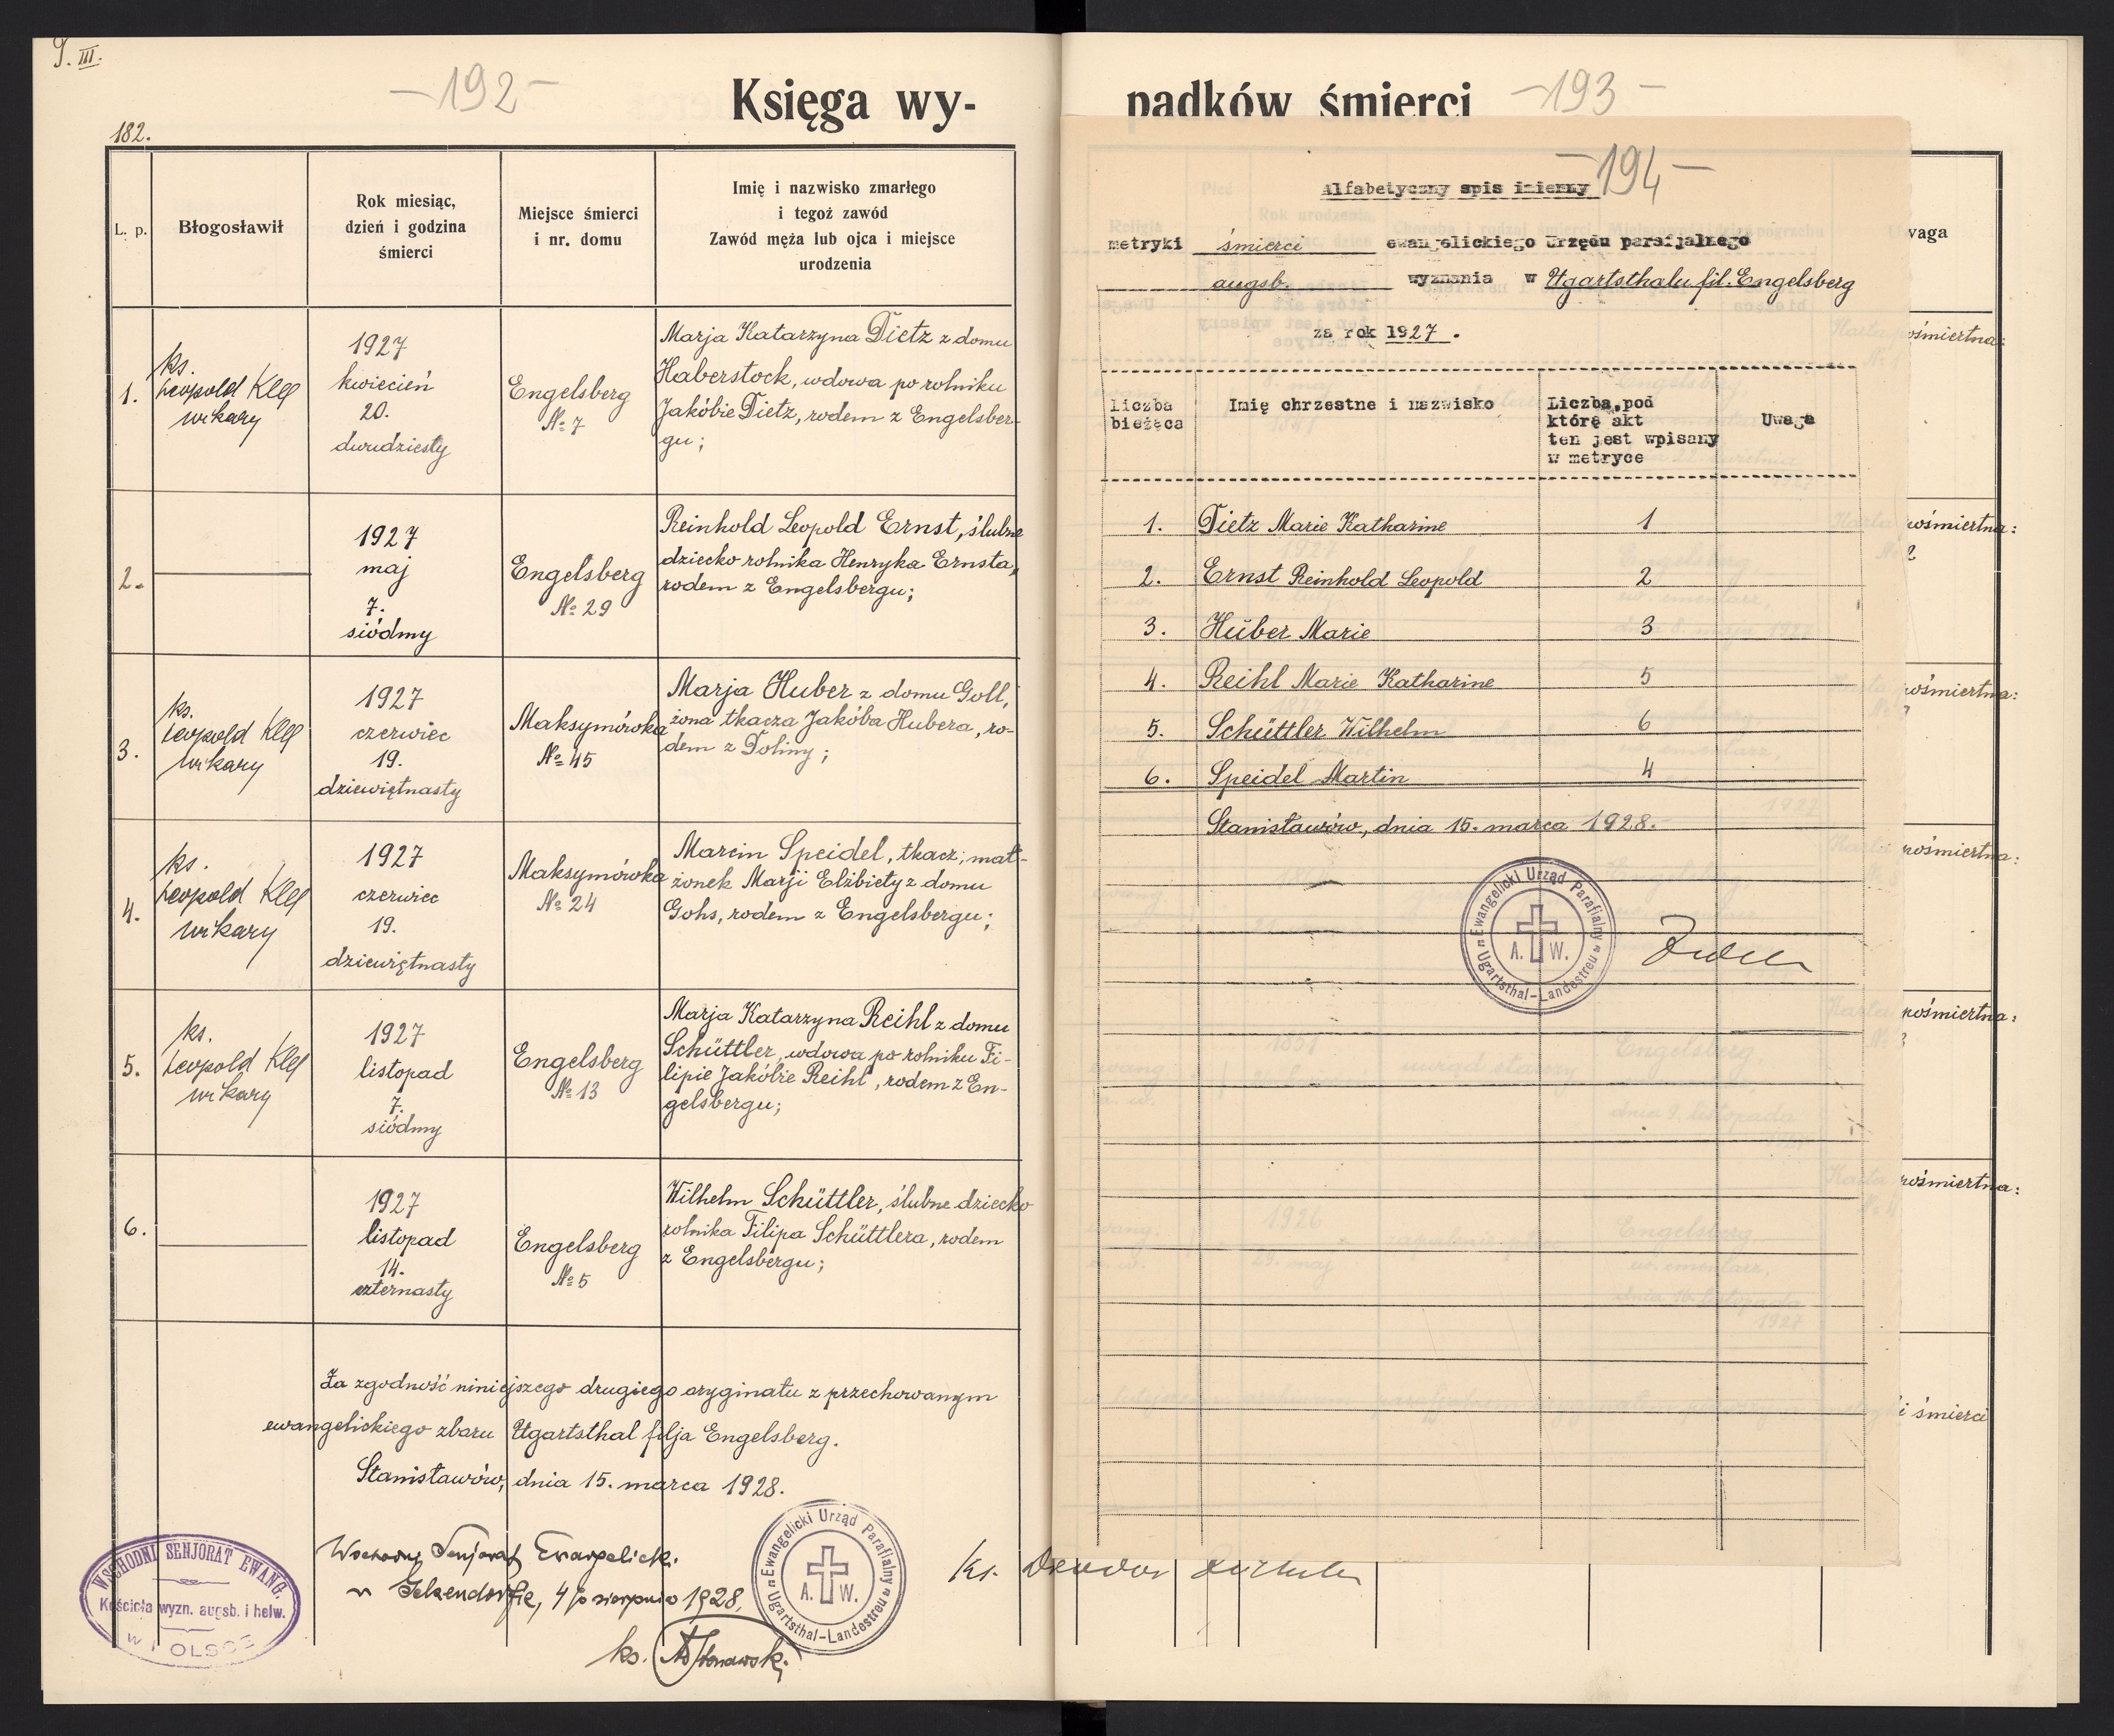 T. III.
-192-
Księga wy-
182.
L. p.
Błogosławił
Rok miesiąc,
dzień i godzina
śmierci
Miejsce śmierci
i nr. domu
Imię i nazwisko zmarłego
i tegoż zawód
Zawód męża lub ojca i miejsce
urodzenia
1.
ks.
Leopold Klee
wikary
1927
kwiecień
20.
dwudziesty
Engelsberg
№ 7
Marja Katarzyna Dietz z domu
Haberstock, wdowa po rolniku
Jakóbie Dietz, rodem z Engelsber-
gu;
2.
1927
maj
7.
siódmy
Engelsberg
№ 29
Reinhold Leopold Ernst, ślubne
dziecko rolnika Henryka Ernsta,
rodem z Engelsbergu;
3.
ks.
Leopold Klee
wikary
1927
czerwiec
19.
dziewiętnasty
Maksymówka
№ 45
Marja Huber z domu Goll,
żona tkacza Jakóba Hubera, ro-
dem z Doliny;
4.
ks.
Leopold Klee
wikary
1927
czerwiec
19.
dziewiętnasty
Maksymówka
№ 24
Marcin Speidel, tkacz, mał-
żonek Marji Elżbiety z domu
Gohs, rodem z Engelsbergu;
5.
ks.
Leopold Klee
wikary
1927
listopad
7.
siódmy
Engelsberg
№ 13
Marja Katarzyna Reihl z domu
Schüttler, wdowa po rolniku Fi-
lipie Jakóbie Reihl, rodem z En-
gelsbergu;
6.
1927
listopad
14.
czternasty
Engelsberg
№ 5
Wilhelm Schüttler, ślubne dziecko
rolnika Filipa Schüttlera, rodem
z Engelsbergu;
Za zgodność niniejszego drugiego oryginału z przechowanym
ewangelickiego zboru Ugartsthal filja Engelsberg.
Stanisławów, dnia 15. marca 1928.
WSCHODNI SENJORAT EWANG.
Kościoła wyzn. augsb. i helw.
w POLSCE
Wschodni Senjorat Ewangelick.
w Gelsendorfie, 4/o sierpnia 1928.
ks.
Ewangelicki Urząd Parafialny
A. W.
Ugartsthal-Landestreu
ks.
padków śmierci
-193-
-194-
Alfabetyczny spis imienny
metryki śmierci ewangelickiego Urzędu parafjalnego
augsb. wyznania w Ugartsthalu fil. Engelsberg
za rok 1927.
Liczba
bieżąca
Imię chrzestne i nazwisko
Liczba, pod
którę akt
ten jest wpisany
w metryce
Uwaga
1. Dietz Marie Katharine 1
2. Ernst Reinhold Leopold 2
3. Huber Marie 3
4. Reihl Marie Katharine 5
5. Schüttler Wilhelm 6
6. Speidel Martin 4
Stanisławów, dnia 15. marca 1928.
Ewangelicki Urząd Parafialny
A. W.
Ugartsthal-Landestreu
waga
ośmiertna:
pośmiertna:
2
pośmiertna:
pośmiertna:
pośmiertna:
pośmiertna:
i śmierci